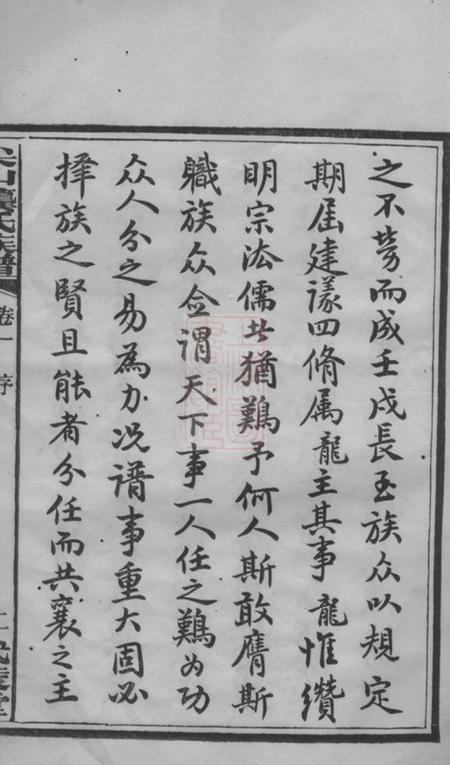 之不勞而成壬戌長至族众以規定
期届建議四脩属龍主其事龍惟纘
明宗法儒者猶難予何人斯敢膺斯
職族众僉謂天下事一人任之難为功
众人分之易為力况谱事重大固必
擇族之賢且能者分任而共襄之主
氏族譜 卷一 序